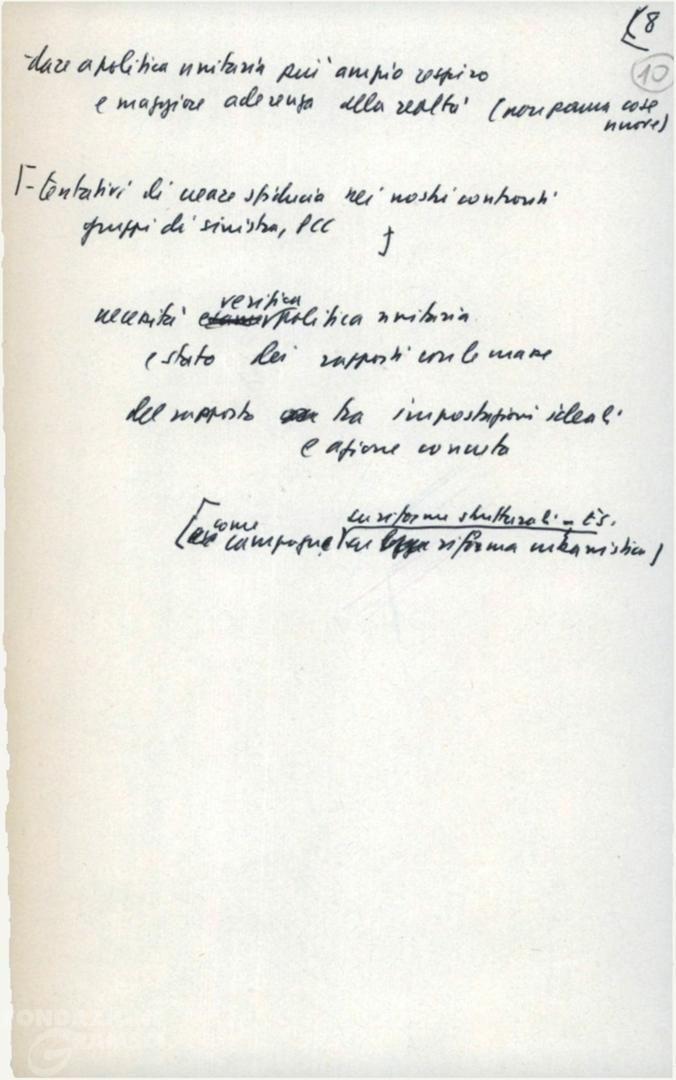 [8
10
- dare a politica unitaria più ampio respiro
e maggiore aderenza alla realtà (non poama cose
nuove)
[- tentativi di creare sfiducia nei nostri confronti
gruppi di sinistra, PCC ]
verifica
necessità politica unitaria
e stato dei rapporti con le masse
del rapporto tra impostazioni ideali
e azione concreta
come su riforme strutturali - Es.
[campagne su riforma urbanistica]
FONDAZIONE
GRAMSCI